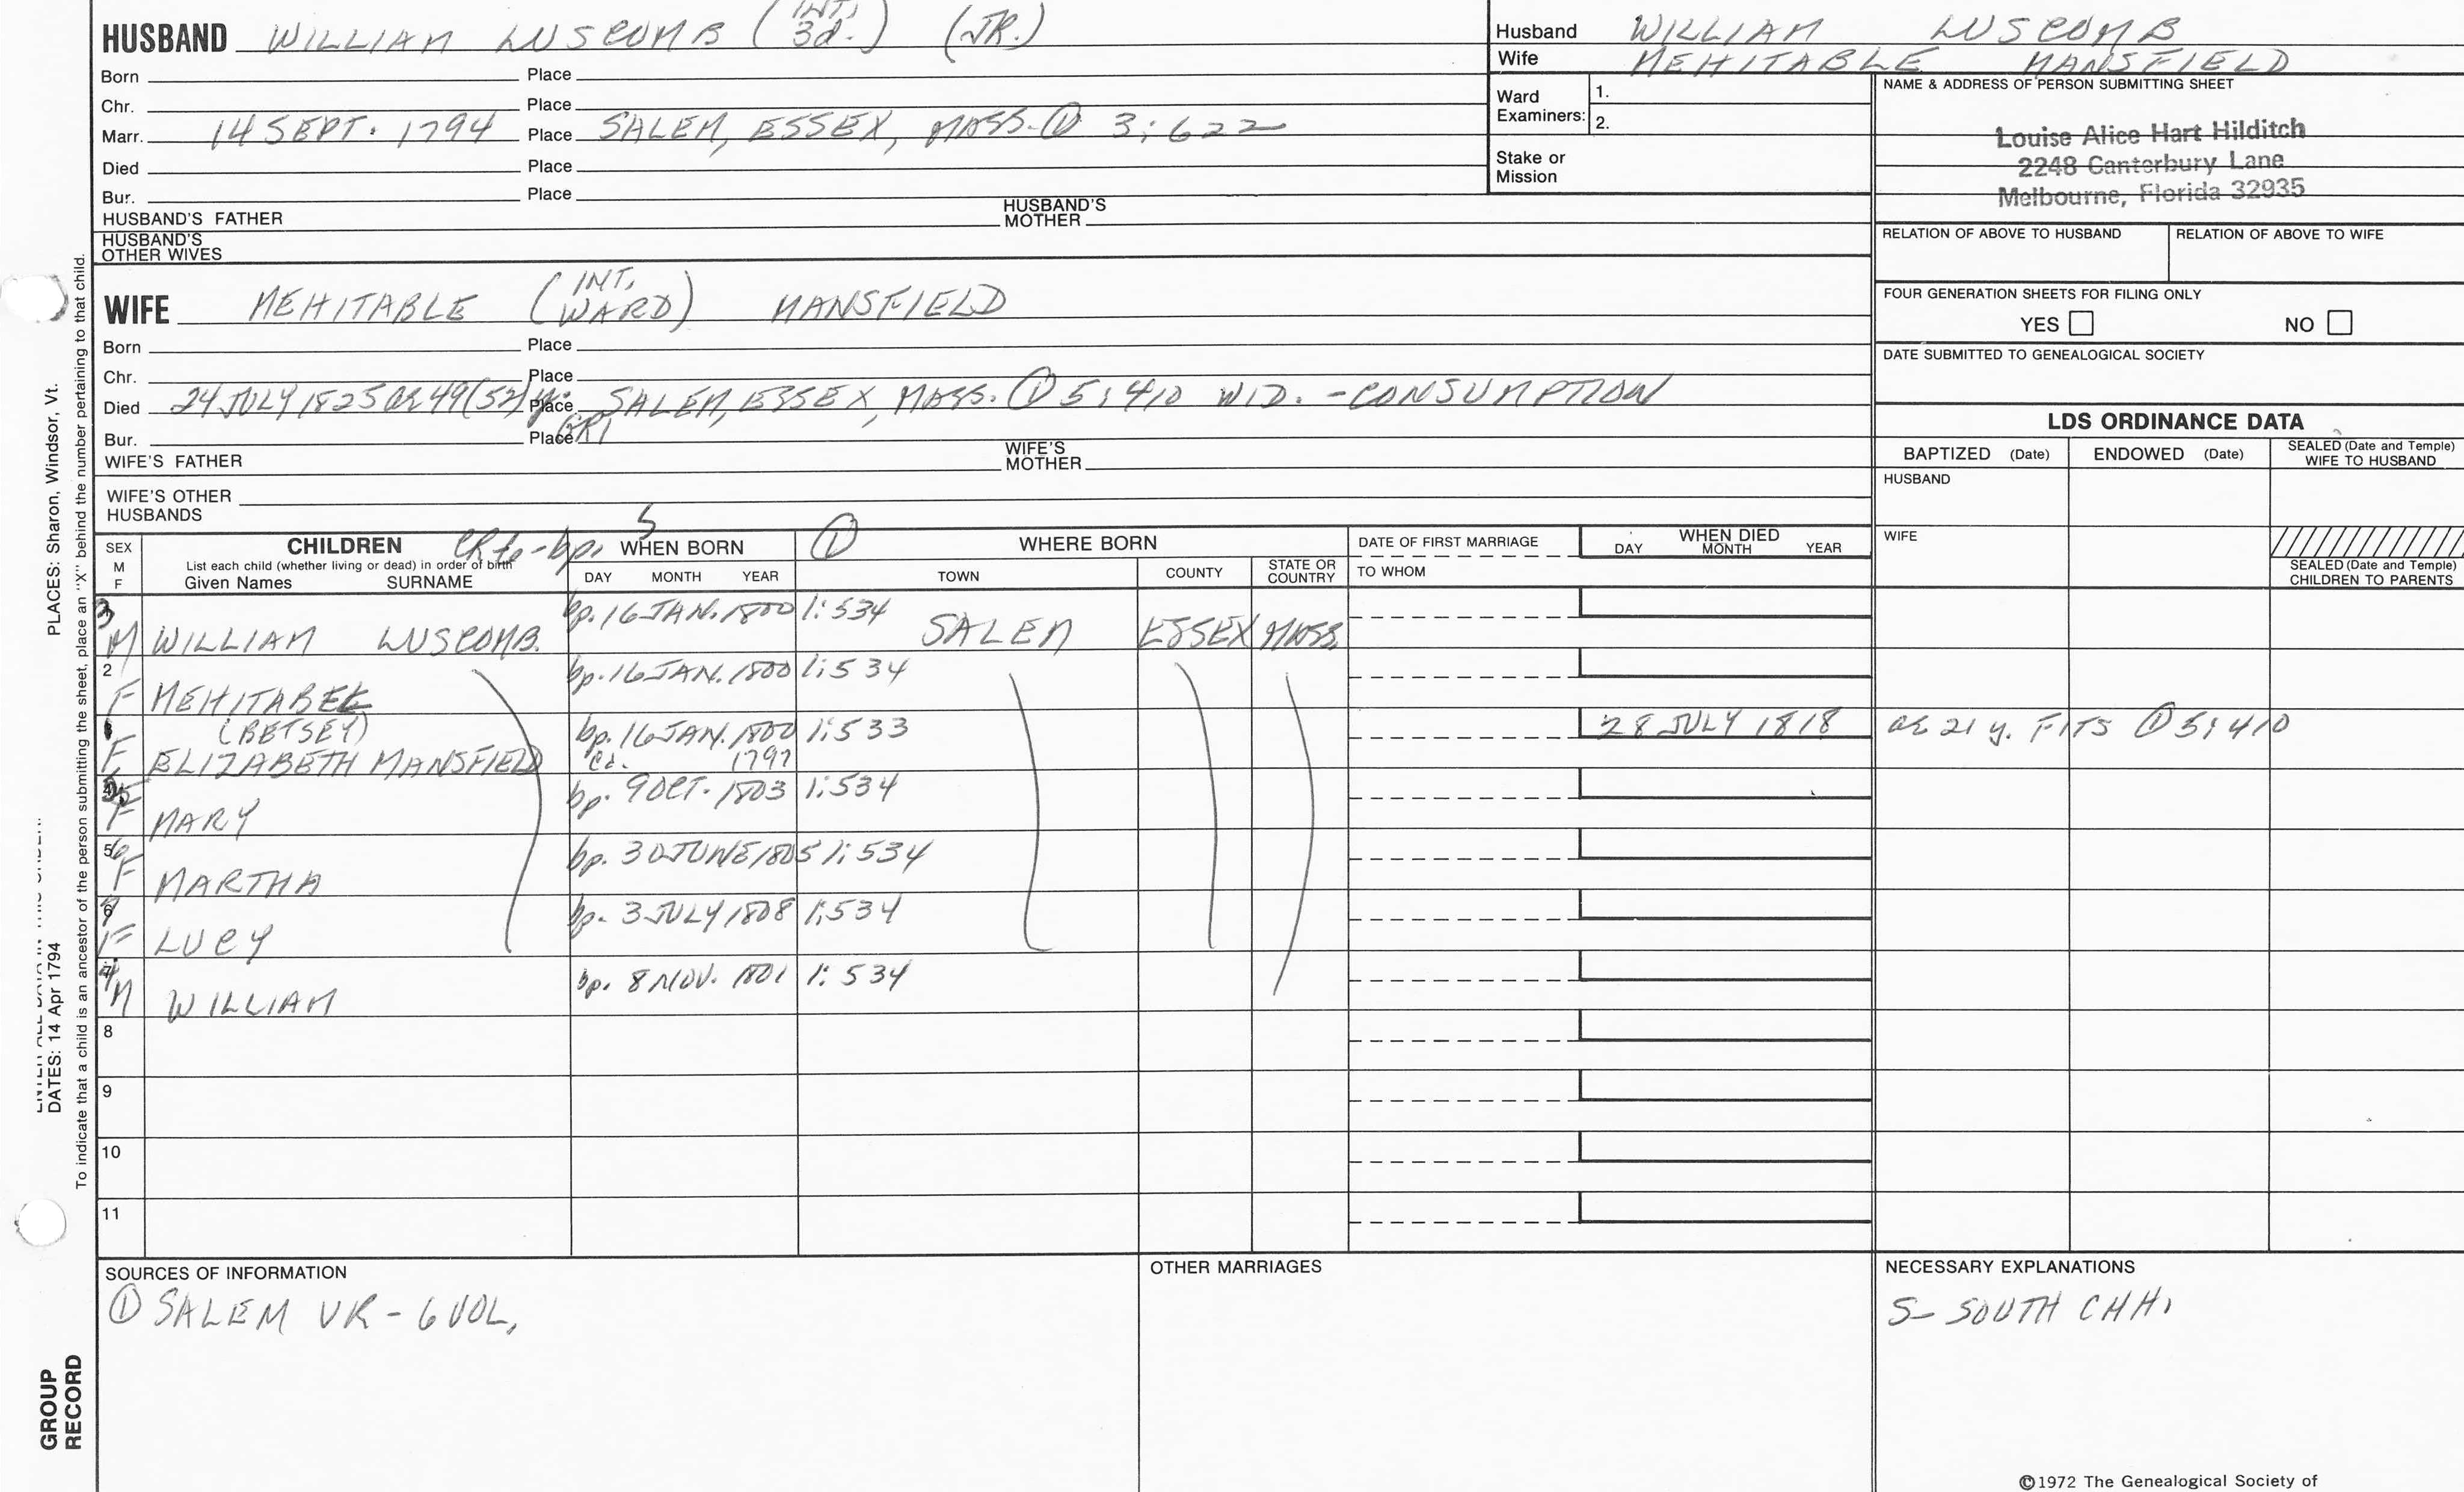 HUSBAND WILLIAM LUSCOMB (INT. 3d.) (JR.)
Born Place
Chr. Place
Marr. 14 SEPT. 1794 Place SALEM, ESSEX, MASS. ① 3:622
Died Place
Bur. Place
HUSBAND'S FATHER HUSBAND'S MOTHER
HUSBAND'S OTHER WIVES
Husband WILLIAM LUSCOMB
Wife MEHITABLE MANSFIELD
Ward Examiners: 1.
2.
Stake or Mission
NAME & ADDRESS OF PERSON SUBMITTING SHEET
Louise Alice Hart Hilditch
2248 Canterbury Lane
Melbourne, Florida 32935
RELATION OF ABOVE TO HUSBAND RELATION OF ABOVE TO WIFE
FOUR GENERATION SHEETS FOR FILING ONLY
YES NO
DATE SUBMITTED TO GENEALOGICAL SOCIETY
WIFE MEHITABLE (INT. WARD) MANSFIELD
Born Place
Chr. Place
Died 24 JULY 1825 ae 49 (52) y. Place SALEM, ESSEX, MASS. ① 5:410 WID. - CONSUMPTION
GR1
Bur. Place
WIFE'S FATHER WIFE'S MOTHER
WIFE'S OTHER HUSBANDS
LDS ORDINANCE DATA
BAPTIZED (Date) ENDOWED (Date) SEALED (Date and Temple) WIFE TO HUSBAND
HUSBAND
WIFE
SEALED (Date and Temple) CHILDREN TO PARENTS
SEX M F
CHILDREN
List each child (whether living or dead) in order of birth
Given Names SURNAME
bp. S ①
WHEN BORN WHERE BORN
DAY MONTH YEAR TOWN COUNTY STATE OR COUNTRY
DATE OF FIRST MARRIAGE
TO WHOM
WHEN DIED
DAY MONTH YEAR
3 M WILLIAM LUSCOMB. bp. 16 JAN. 1800 1:534 SALEM ESSEX MASS.
2 F MEHITABEL bp. 16 JAN. 1800 1:534
F (BETSEY) ELIZABETH MANSFIELD bp. 16 JAN. 1800 1:533 28 JULY 1818 ae 21 y. FITS ① 5:410
ca. 1797
5 F MARY bp. 9 OCT. 1803 1:534
5 6 F MARTHA bp. 30 JUNE 1805 1:534
6 7 F LUCY bp. 3 JULY 1808 1:534
7 4 M WILLIAM bp. 8 NOV. 1801 1:534
8
9
10
11
SOURCES OF INFORMATION
① SALEM VR - 6 VOL.
OTHER MARRIAGES
NECESSARY EXPLANATIONS
S - SOUTH CHH.
©1972 The Genealogical Society of
PLACES: Sharon, Windsor, Vt.
DATES: 14 Apr 1794
To indicate that a child is an ancestor of the person submitting the sheet, place an "X" behind the number pertaining to that child.
GROUP RECORD